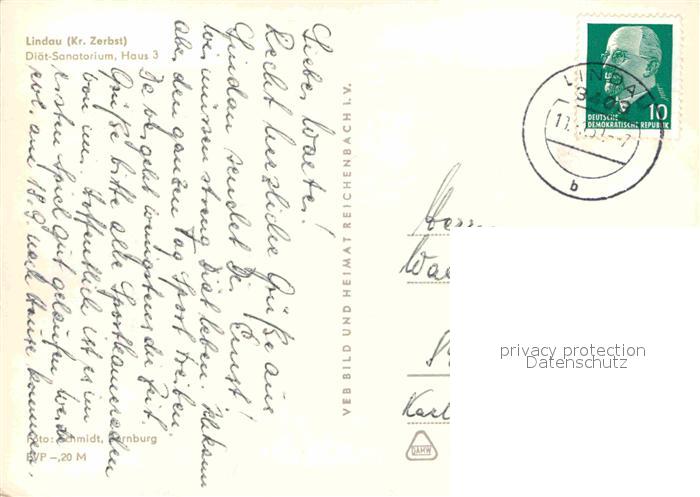 Lindau (Kr. Zerbst)
Diät-Sanatorium, Haus 3
Lieber Walter!
Recht herzliche Grüße aus
Lindau sendet Dir Ernst!
Wir müssen streng Diät leben.
aber den ganzen Tag Sport treiben
Da vergeht wenigstens die Zeit.
Grüße bitte alle Sportkameraden
von mir. Hoffentlich ist es im
ersten Spiel gut gelaufen. Werde
am 18.9. nach Hause kommen.
Foto: Schmidt, Bernburg
EVP –,20 M
VEB BILD UND HEIMAT REICHENBACH I. V.
DEUTSCHE
DEMOKRATISCHE REPUBLIK
10
LINDAU
3403
b
Karl
DAMW
privacy protection
Datenschutz